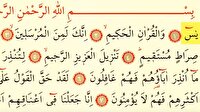 بِسْمِ اللَّهِ الرَّحْمَٰنِ الر
يسٓ ۞ وَالْقُرْآنِ الْحَكِيمِ ۞ إِنَّكَ لَمِنَ الْمُرْسَلِينَ ۞
صِرَاطٍ مُسْتَقِيمٍ ۞ تَنْزِيلَ الْعَزِيزِ الرَّحِيمِ ۞ لِتُنْذِرَ
مَا أُنْذِرَ آبَاؤُهُمْ فَهُمْ غَافِلُونَ ۞ لَقَدْ حَقَّ الْقَوْلُ عَلَى
أَكْثَرِهِمْ فَهُمْ لَا يُؤْمِنُونَ ۞ إِنَّا جَعَلْنَا فِي أَعْنَاقِهِمْ